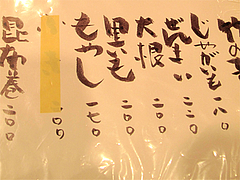 竹の子 一八〇
じゃがいも 一八〇
ぜんまい 二〇〇
大根 二〇〇
里いも 二〇〇
もやし 一七〇
昆布巻 二〇〇